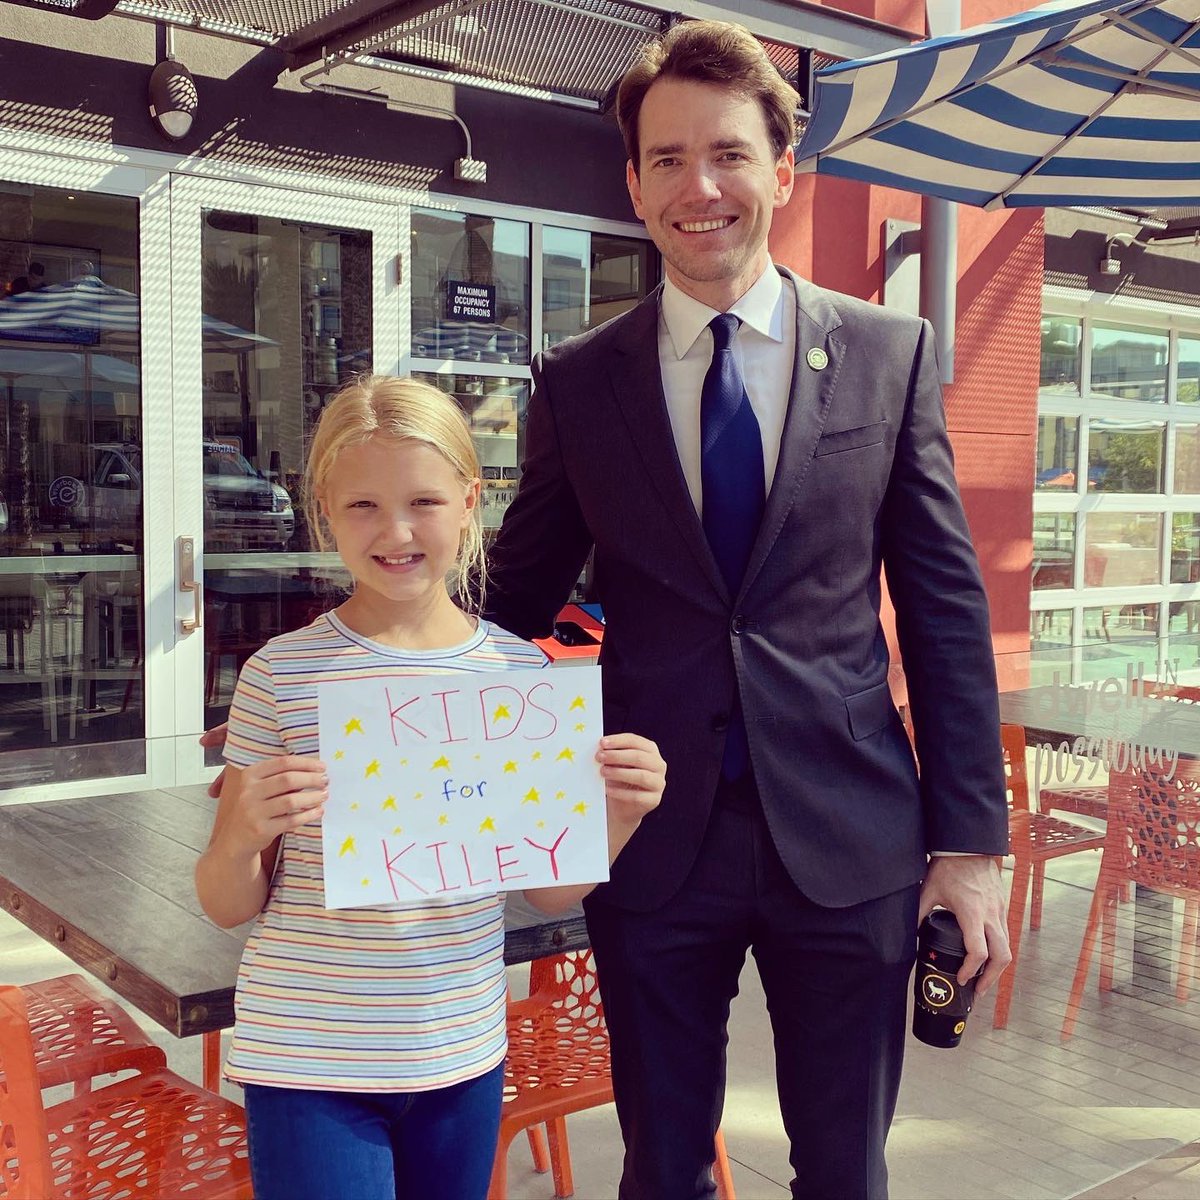 MAXIMUM
OCCUPANCY
67 PERSONS
SOCIAL
KIDS
for
KILEY
dwell IN
possibility